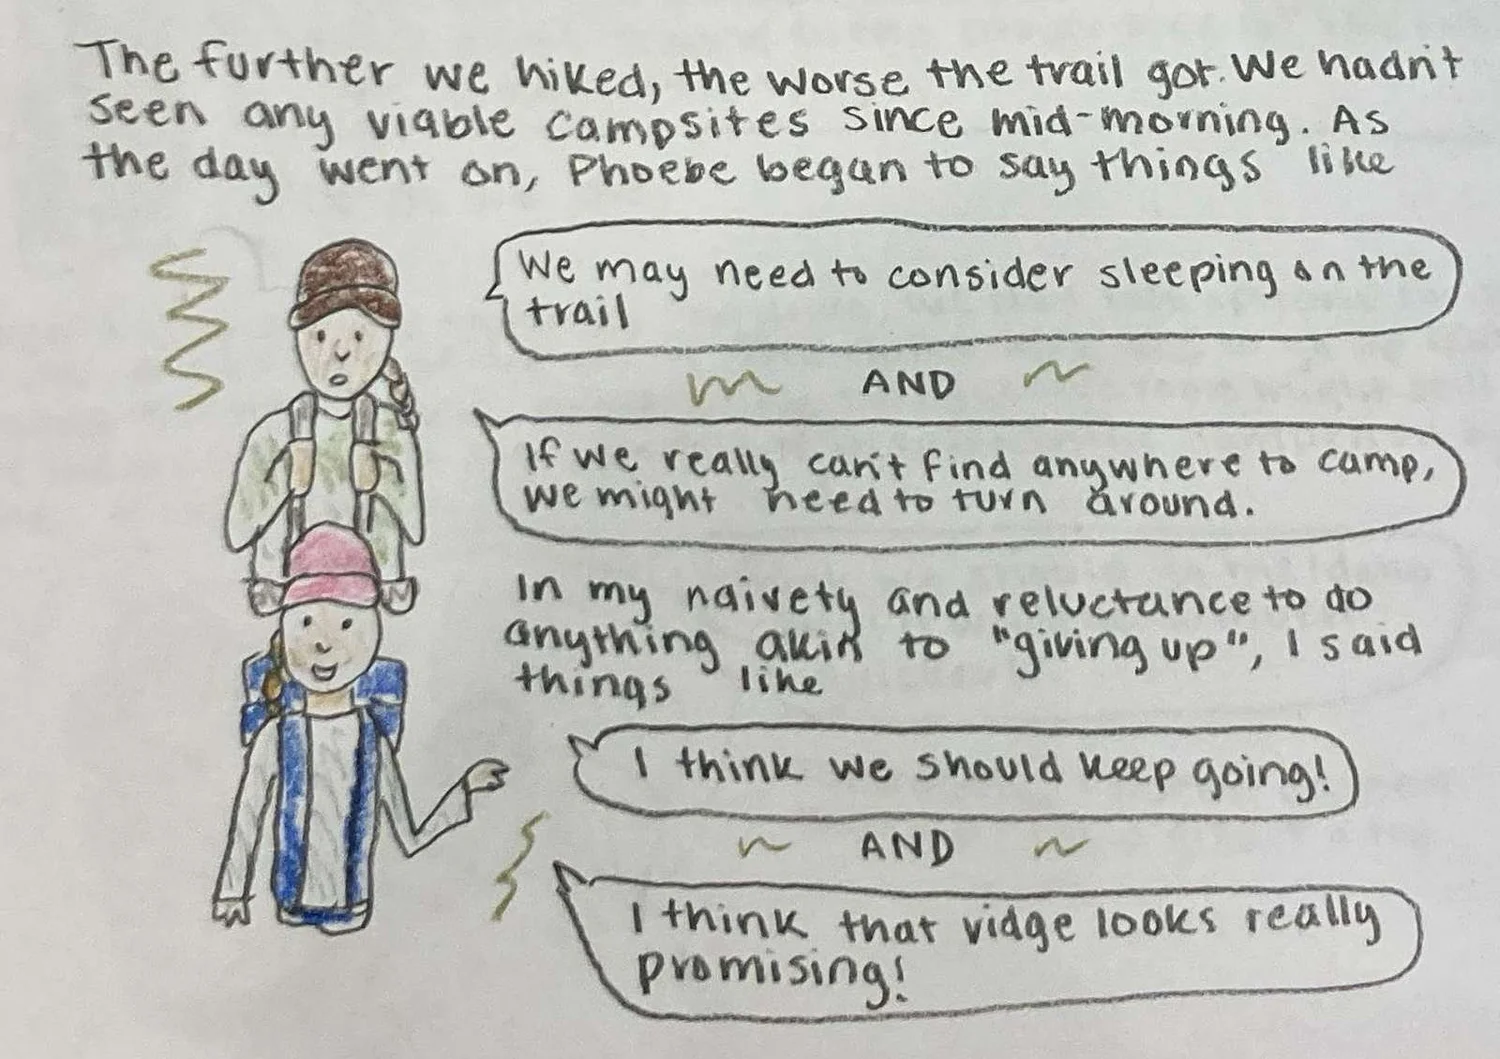 The further we hiked, the worse the trail got. We hadn't
seen any viable campsites since mid-morning. As
the day went on, Phoebe began to say things like
We may need to consider sleeping on the
trail
AND
If we really can't find anywhere to camp,
we might need to turn around.
In my naivety and reluctance to do
anything akin to "giving up", I said
things like
I think we should keep going!
AND
I think that ridge looks really
promising!